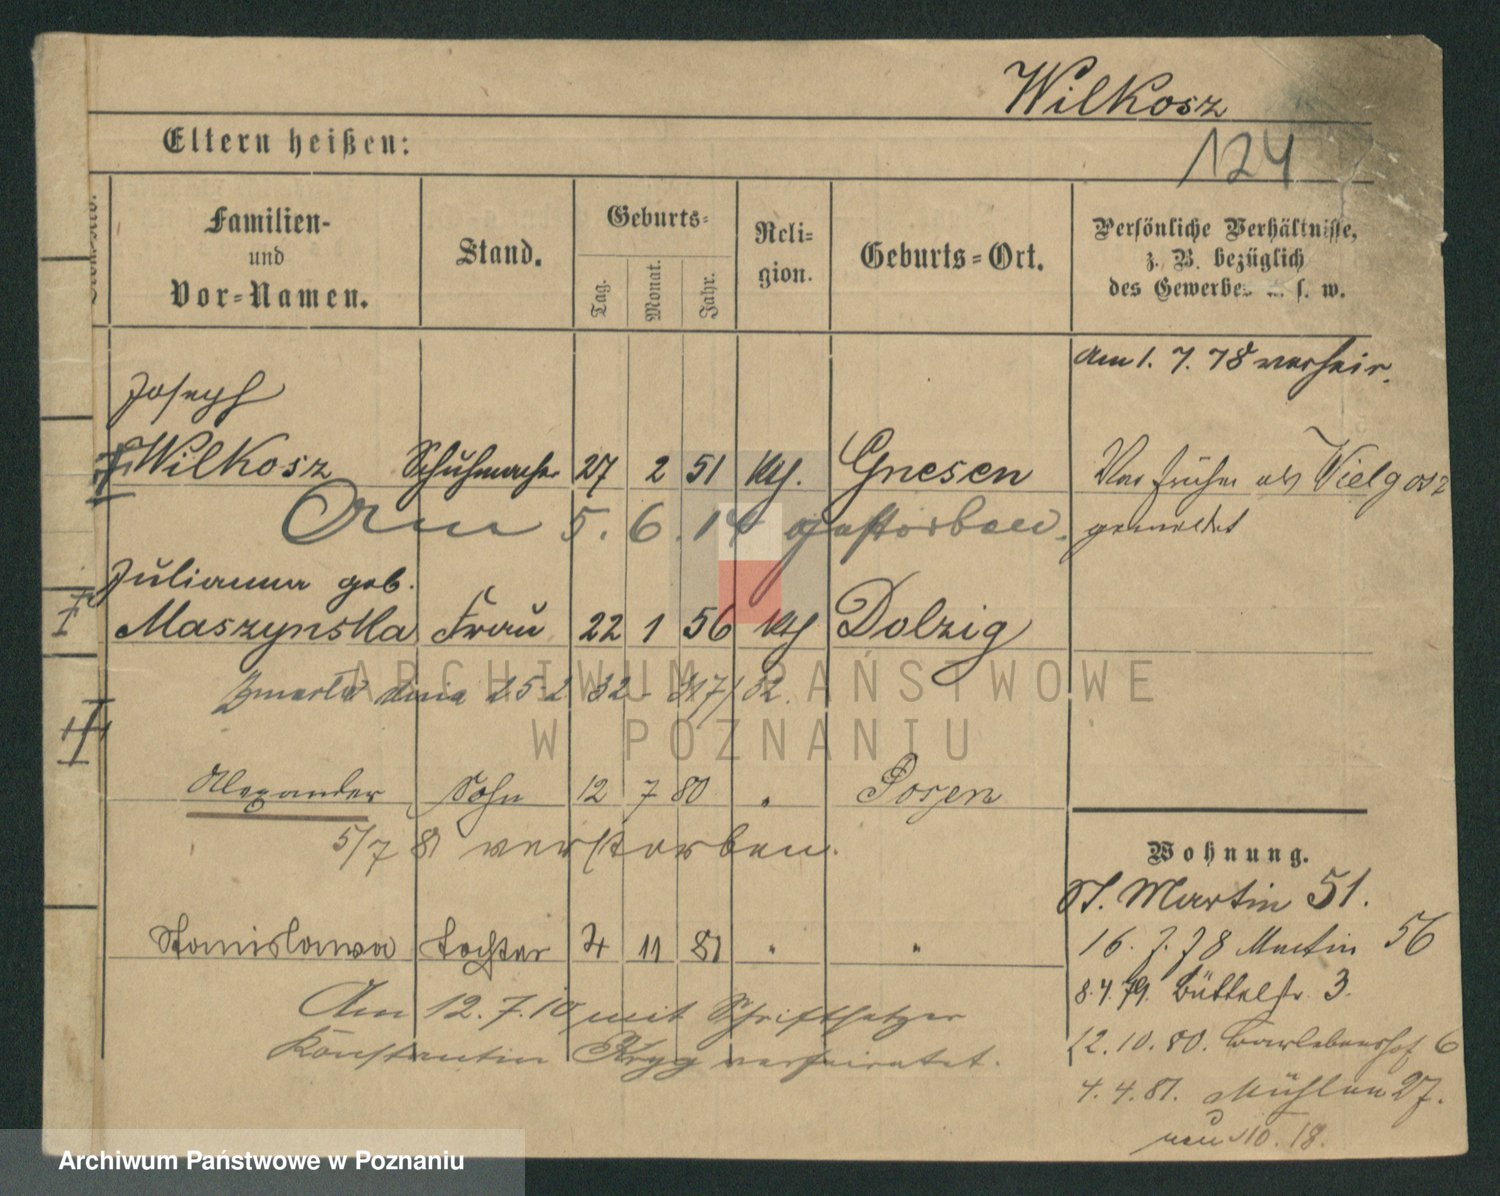 Wilkosz
124
Eltern heißen:
Familien-
und
Vor-Namen.
Stand.
Geburts-
Tag.
Monat.
Jahr.
Reli-
gion.
Geburts-Ort.
Persönliche Verhältnisse,
z. B. bezüglich
des Gewerbes u. s. w.
Am 1. 7. 78 verheir.
Joseph
Wilkosz Schuhmacher 27 2 51 kth. Gnesen
War früher als Wielgosz
gemeldet
Am 5. 6. 14 gestorben.
Julianna geb.
Maszynska Frau 22 1 56 kth Dolzig
Zmarła dnia 25-2 32 - 317/32.
Alexander Sohn 12 7 80 " Posen
5/7 81 verstorben.
Stanislawa Tochter 4 11 81 " "
Am 12. 7. 10 mit Schriftsetzer
Konstantin Kryg verheiratet.
Wohnung.
St. Martin 51.
16. 7. 78 Martin 56
8. 4. 79. Büttelstr. 3.
12. 10. 80. Barlebenshof 6
4. 4. 81. Mühlen 27.
neu 18.
ARCHIWUM PAŃSTWOWE
W POZNANIU
Archiwum Państwowe w Poznaniu